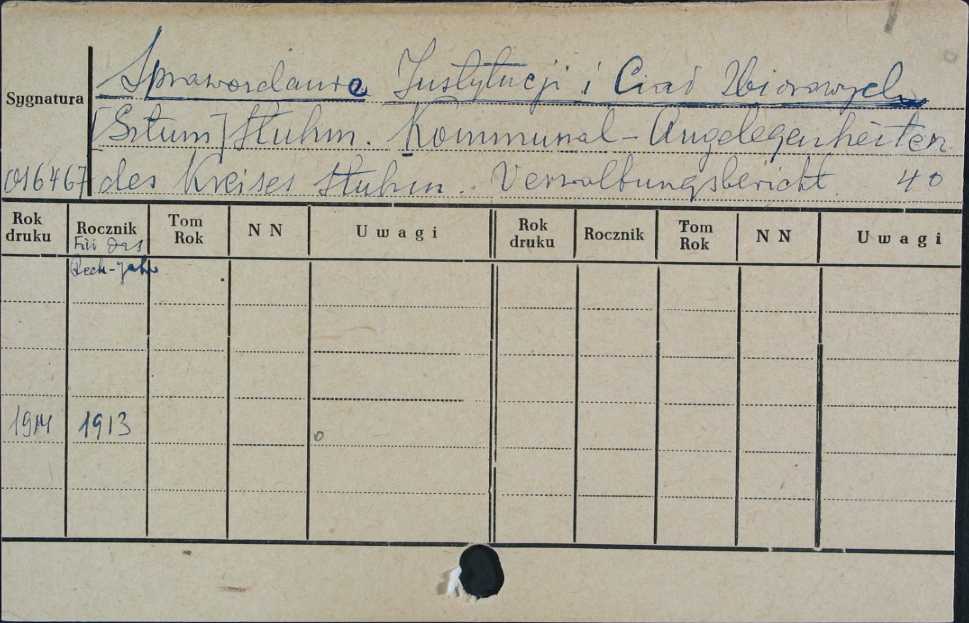 Sprawozdawcze Instytucji i Ciał Zbiorowych
Sygnatura
[Sztum] Stuhm. Kommunal-Angelegenheiten
016467 des Kreises Stuhm. Verwaltungsbericht 40
Rok druku Rocznik Tom Rok NN Uwagi Rok druku Rocznik Tom Rok NN Uwagi
Für das
Rech-Jahr
1914 1913